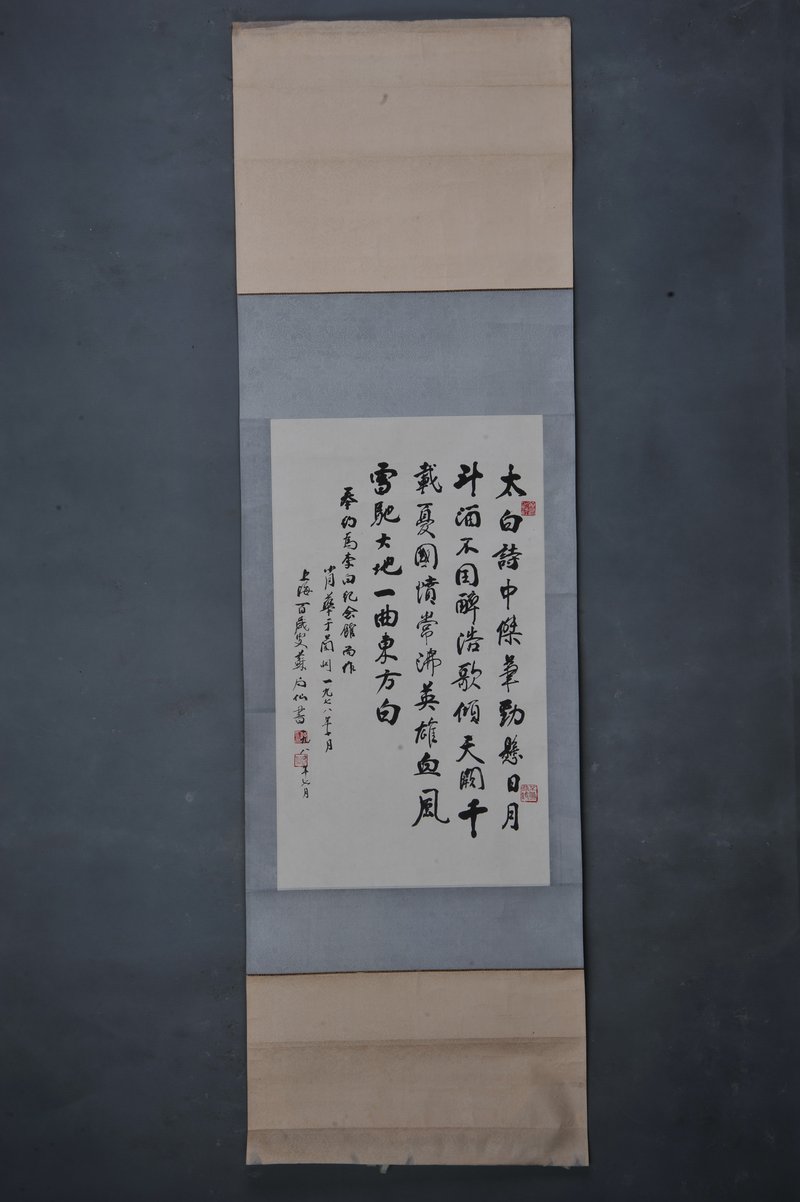 太白詩中傑筆勁懸日月
斗酒不因醉浩歌傾天闕千
載憂國憤常沸英雄血風
雪馳大地一曲東方白
奉約為李白紀念館而作
肖華于蘭州一九七八年十月
上海百歲叟蘇局仙書一九八一年七月